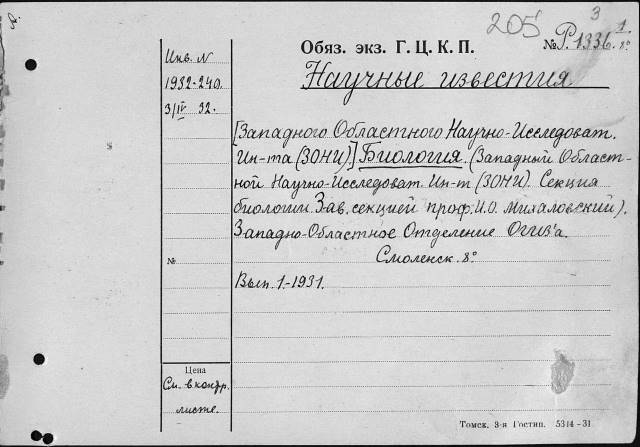 205
3
Обяз. экз. Г. Ц. К. П.
№ Р.1336. 1/8°
Инв. N
1932-240.
3/IV 32.
Научные известия
[Западного Областного Научно-Исследоват.
Ин-та (ЗОНИ).] Биология. (Западный Област-
ной Научно-Исследоват. Ин-т (ЗОНИ). Секция
биологии. Зав. секцией проф. И.О. Михаловский).
Западно-Областное Отделение Огиз'а.
Смоленск. 8°
№
Вып. 1.-1931.
Цена
См. в контр.
листе.
Томск. 3-я Гостип. 5314-31